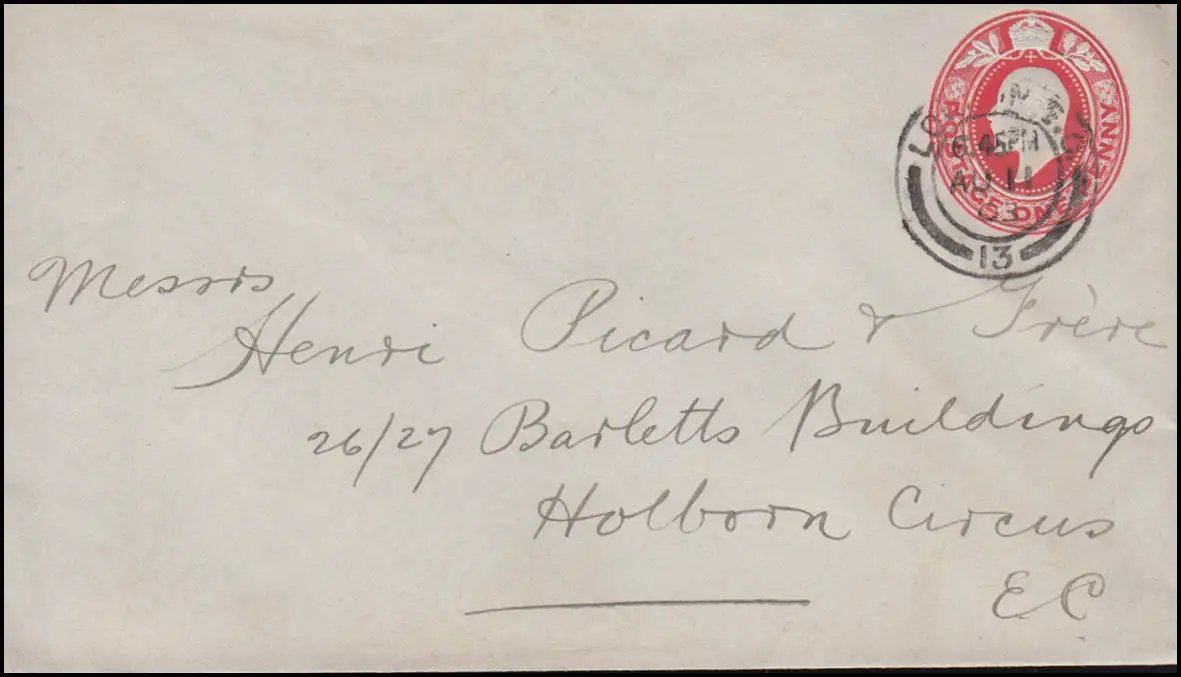 POSTAGE ONE PENNY
LONDON E.C
6.45PM
AU 11
03
13
Messrs
Henri Picard & Frère
26/27 Barletts Buildings
Holborn Circus
E C